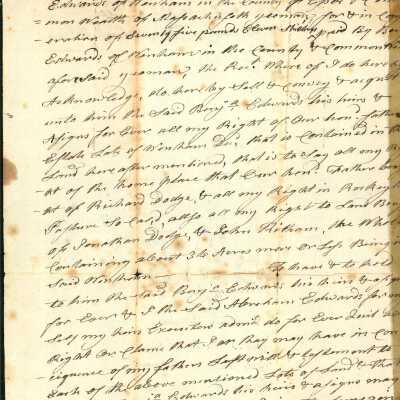 Edwards of Wenham in the County of Essex & Com
mon Wealth of Massachusetts yeoman, for & in Con
eration of Seventy five pounds Eleven Shillings paid By Ben
Edwards of Wenham in the County & Common
aforesaid yeoman, the Rect. Where of I do hereby
Acknowledge, do hereby Sell & Convey & acquit
unto him the Said Benja. Edwards his heirs &
Asigns for Ever all my Right of Our Hond. father
Estate Late of Wenham Dc. that is Contained in the
Land here after mentioned, that is to Say all my Ri
of the home place that Our Hond. Father bou
of Richard Dodge, & all my Right in Rockey
Pasture So Cald, allso all my Right to Land Bou
of Jonathan Dodge, & John Hotham, the Whole
Containing about 34 Acres more Or Less Being in
Said Wenham To have & to hold
to him the Said Benja. Edwards his heirs & asigns
for Ever & I the Said Abraham Edwards for my
Self my heirs Executors admrs. do for Ever Quit
Right Or Claime that I or they may have in Con
sequence of my fathers Last will & testement to
Each of the above mentioned Lots of Land that
Edwards his heirs & asigns may